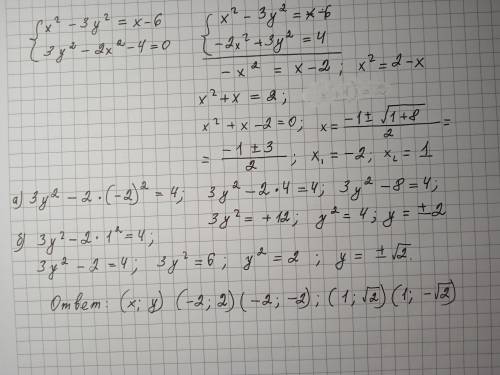 {x² - 3y² = x - 6
{3y² - 2x² - 4 = 0
{x² - 3y² = x - 6
{-2x² + 3y² = 4
-x² = x - 2; x² = 2 - x
x² + x = 2;
x² + x - 2 = 0; x = (-1 ± √(1+8))/2 =
= (-1 ± 3)/2; x₁ = -2; x₂ = 1
а) 3y² - 2 · (-2)² = 4; 3y² - 2 · 4 = 4; 3y² - 8 = 4;
3y² = +12; y² = 4; y = ± 2
б) 3y² - 2 · 1² = 4;
3y² - 2 = 4; 3y² = 6; y² = 2; y = ±√2.
Ответ: (x; y) (-2; 2) (-2; -2); (1; √2) (1; -√2)